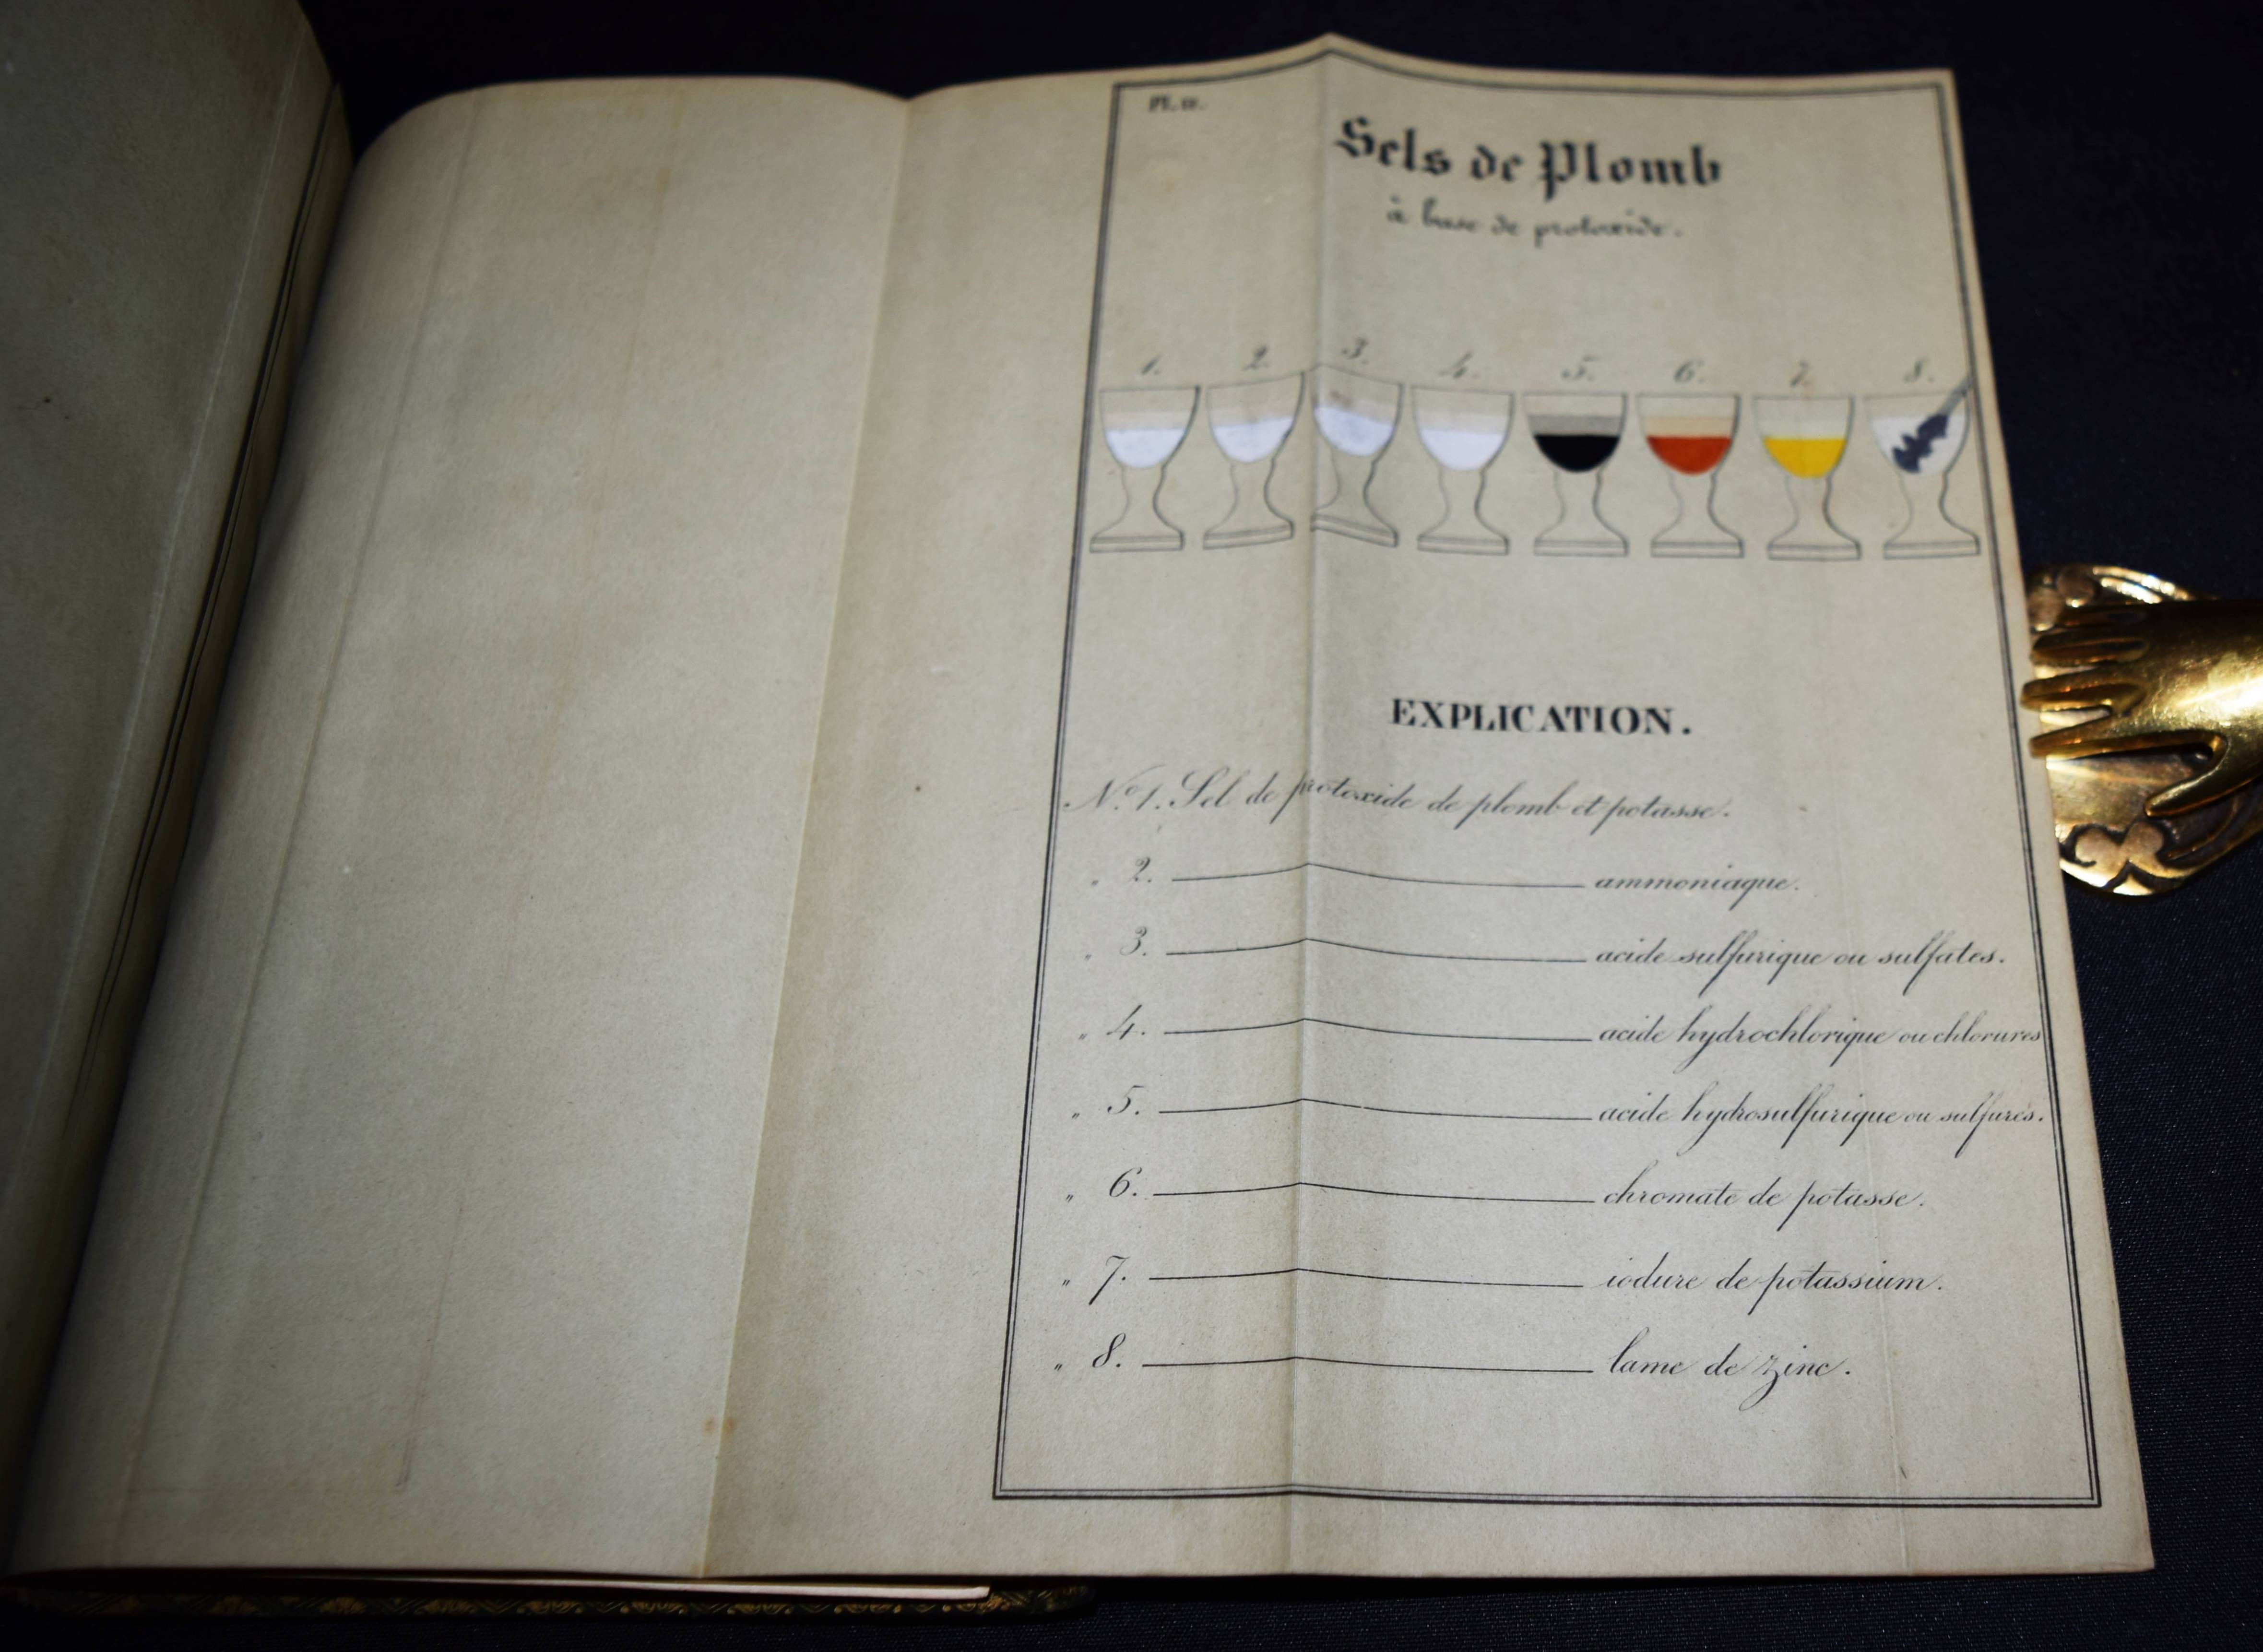 Sels de Plomb
à base de protoxide.
1. 2. 3. 4. 5. 6. 7. 8.
EXPLICATION.
N.º 1. Sel de protoxide de plomb et potasse.
" 2. ammoniaque.
" 3. acide sulfurique ou sulfates.
" 4. acide hydrochlorique ou chlorures
" 5. acide hydrosulfurique ou sulfures.
" 6. chromate de potasse.
" 7. iodure de potassium.
" 8. lame de zinc.